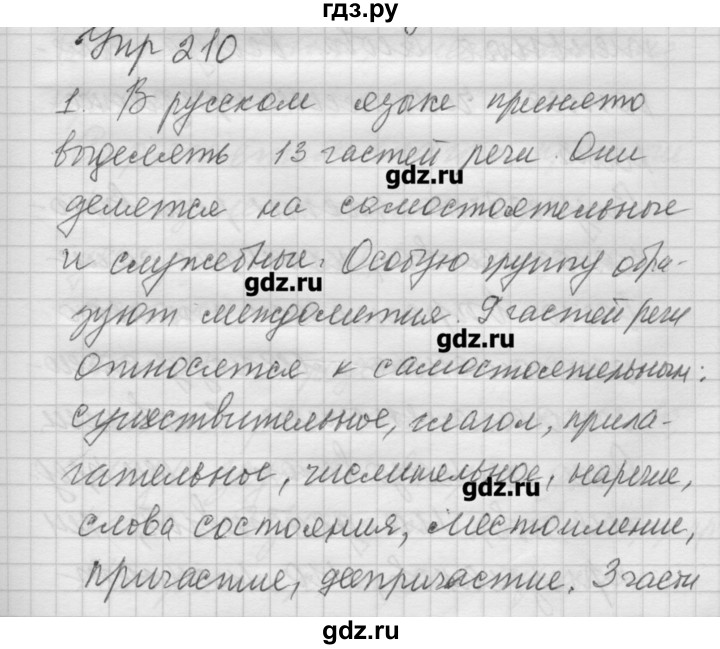 гдз.ру
Упр 210
1. В русском языке принято
выделять 13 частей речи. Они
gdz.ru
делятся на самостоятельные
и служебные. Особую группу обра-
gdz.ru
зуют междометия. 9 частей речи
gdz.ru
относятся к самостоятельным:
существительное, глагол, прила-
гательное, числительное, наречие,
gdz.ru
слова состояния, местоимение,
причастие, деепричастие. 3 части
gdz.ru